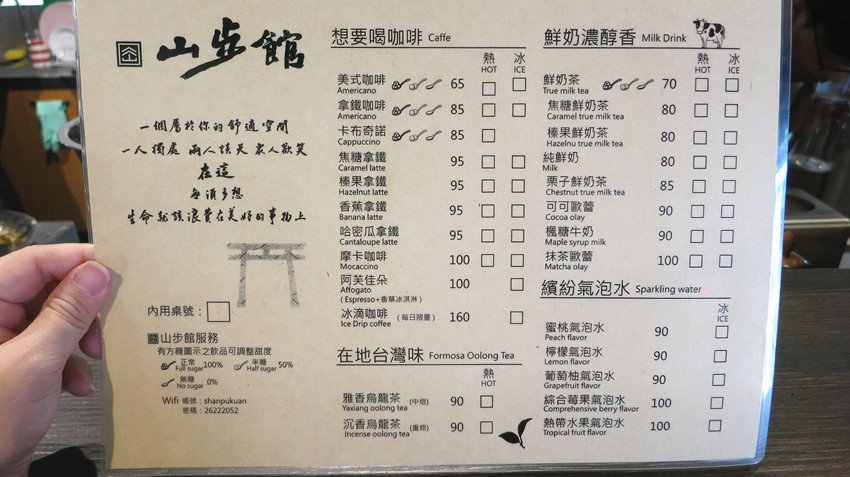 山步館
一個屬於你的舒適空間
一人獨處 兩人談天 眾人歡笑
在這
無須多想
生命就該浪費在美好的事物上
內用桌號:
山步館服務
有方糖圖示之飲品可調整甜度
正常 Full sugar 100% 半糖 Half sugar 50%
無糖 No sugar 0%
Wifi 帳號:shanpukuan
密碼:26222052
想要喝咖啡 Caffe
熱 HOT 冰 ICE
美式咖啡 65
Americano
拿鐵咖啡 85
Americano
卡布奇諾 85
Cappuccino
焦糖拿鐵 95
Caramel latte
榛果拿鐵 95
Hazelnut latte
香蕉拿鐵 95
Banana latte
哈密瓜拿鐵 95
Cantaloupe latte
摩卡咖啡 100
Mocaccino
阿芙佳朵 100
Affogato
(Espresso+香草冰淇淋)
冰滴咖啡 (每日限量) 160
Ice Drip coffee
在地台灣味 Formosa Oolong Tea
熱
HOT
雅香烏龍茶 (中焙) 90
Yaxiang oolong tea
沉香烏龍茶 (重焙) 90
Incense oolong tea
鮮奶濃醇香 Milk Drink
熱 HOT 冰 ICE
鮮奶茶 70
True milk tea
焦糖鮮奶茶 80
Caramel true milk tea
榛果鮮奶茶 80
Hazelnu true milk tea
純鮮奶 80
Milk
栗子鮮奶茶 85
Chestnut true milk tea
可可歐蕾 90
Cocoa olay
楓糖牛奶 90
Maple syrup milk
抹茶歐蕾 80
Matcha olay
繽紛氣泡水 Sparkling water
冰
ICE
蜜桃氣泡水 90
Peach flavor
檸檬氣泡水 90
Lemon flavor
葡萄柚氣泡水 90
Grapefruit flavor
綜合莓果氣泡水 100
Comprehensive berry flavor
熱帶水果氣泡水 100
Tropical fruit flavor